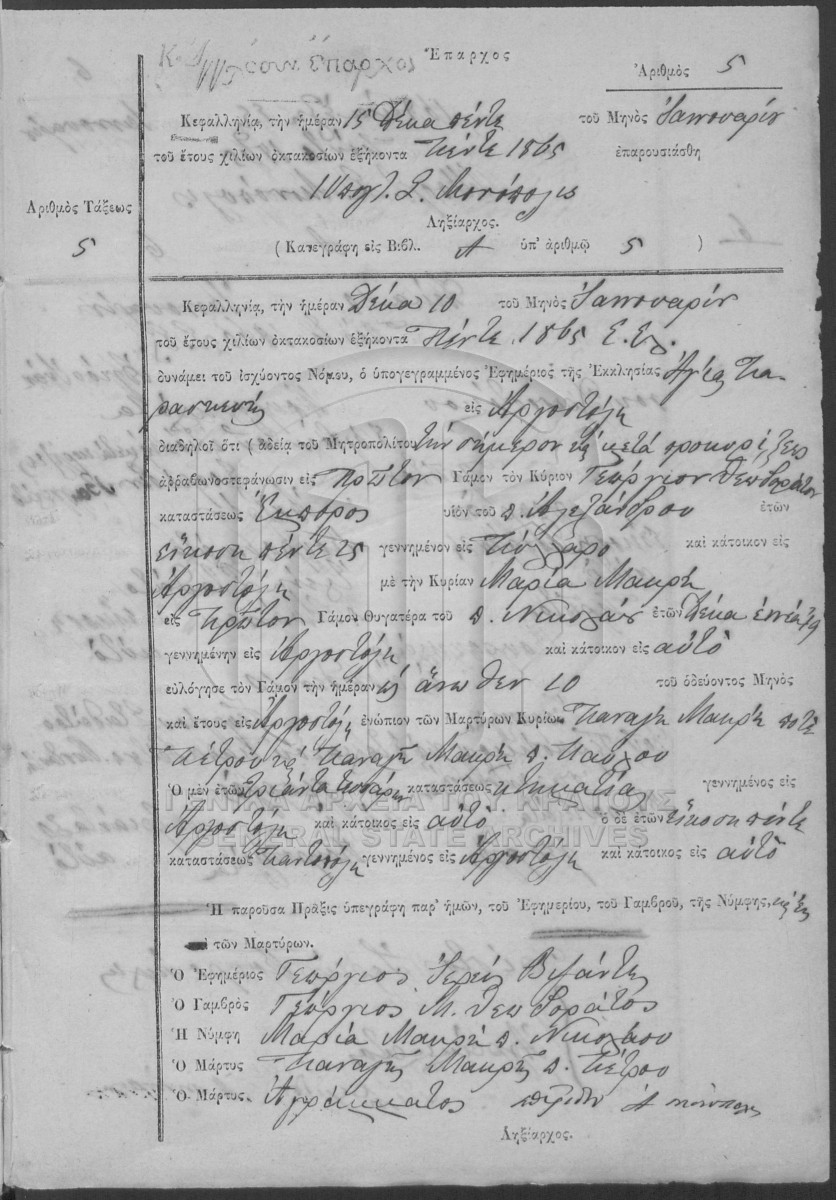 Ἔπαρχος
Ἀριθμὸς 5
Κεφαλληνίᾳ, τὴν ἡμέραν 15 Δέκα πέντε τοῦ Μηνὸς Ἰαννουαρίου
τοῦ ἔτους χιλίων ὀκτακοσίων ἑξήκοντα πέντε 1865 ἐπαρουσιάσθη
Ληξίαρχος.
Ἀριθμὸς Τάξεως
5
( Κατεγράφη εἰς Βιβλ. Α ὑπ' ἀριθμῷ 5 )
Κεφαλληνίᾳ, τὴν ἡμέραν Δέκα 10 τοῦ Μηνὸς Ἰαννουαρίου
τοῦ ἔτους χιλίων ὀκτακοσίων ἑξήκοντα πέντε 1865 Ε.Ε.
δυνάμει τοῦ ἰσχύοντος Νόμου, ὁ ὑπογεγραμμένος Ἐφημέριος τῆς Ἐκκλησίας Ἁγίας Πα
ρασκευῆς εἰς Ἀργοστόλι
διαδηλοῖ ὅτι ( ἀδείᾳ τοῦ Μητροπολίτου τὴν σήμερον
ἀῤῥαβωνοστεφάνωσιν εἰς πρῶτον Γάμον τὸν Κύριον Γεώργιον Θεωδοράτον
καταστάσεως Ἔμπορος υἱὸν τοῦ π. Ἀλεξάνδρου ἐτῶν
εἴκοση πέντε 25 γεννημένον εἰς καὶ κάτοικον εἰς
Ἀργοστόλη μὲ τὴν Κυρίαν Μαρία Μακρῆ
εἰς πρῶτον Γάμον Θυγατέρα τοῦ π. Νικολάου ἐτῶν Δέκα ἐννέα 19
γεννημένην εἰς Ἀργοστόλη καὶ κάτοικον εἰς αὐτὸ
εὐλόγησε τὸν Γάμον τὴν ἡμέραν ὡς ἄνωθεν 10 τοῦ ὁδεύοντος Μηνὸς
καὶ ἔτους εἰς Ἀργοστόλη ἐνώπιον τῶν Μαρτύρων Κυρίων Παναγῆ Μακρῆ ποτὲ
Πέτρου καὶ Παναγῆ Μακρῆ π. Παύλου
Ὁ μὲν ἐτῶν τριάντα καταστάσεως κτηματίας γεννημένος εἰς
Ἀργοστόλη καὶ κάτοικος εἰς αὐτὸ ὁ δὲ ἐτῶν εἴκοση πέντε
καταστάσεως Παντοπόλη γεννημένος εἰς Ἀργοστόλη καὶ κάτοικος εἰς αὐτὸ
ΓΕΝΙΚΑ ΑΡΧΕΙΑ ΤΟΥ ΚΡΑΤΟΥΣ
GENERAL STATE ARCHIVES
Ἡ παροῦσα Πρᾶξις ὑπεγράφη παρ' ἡμῶν, τοῦ Ἐφημερίου, τοῦ Γαμβροῦ, τῆς Νύμφης,
τῶν Μαρτύρων.
Ὁ Ἐφημέριος Γεώργιος Ἱερεὺς
Ὁ Γαμβρὸς Γεώργιος Μ. Θεωδοράτος
Ἡ Νύμφη Μαρία Μακρῆ π. Νικολάου
Ὁ Μάρτυς Παναγῆς Μακρῆς π. Πέτρου
Ὁ Μάρτυς Ἀγράμματος
Ληξίαρχος.